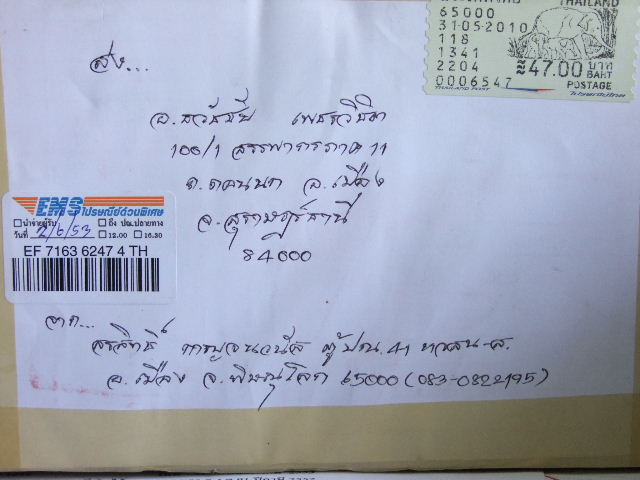 THAILAND
65000
31-05-2010
118
1341
2204
0006547
47.00 บาท
BAHT
POSTAGE
THAILAND POST
ไปรษณีย์ไทย
ส่ง...
อ.ธวัชชัย เพชรวิจิตร
100/1 สรรพากรภาค 11
ถ.ดอนนก อ.เมือง
จ.สุราษฎร์ธานี
84000
EMS ไปรษณีย์ด่วนพิเศษ
นำจ่ายผู้รับ ถึง ปณ.ปลายทาง
วันที่ 2/6/53 12.00 16.30
EF 7163 6247 4 TH
จาก...
กาญจนวนัส ตู้ปณ. 41
อ.เมือง จ.พิษณุโลก 65000 (083-0322195)